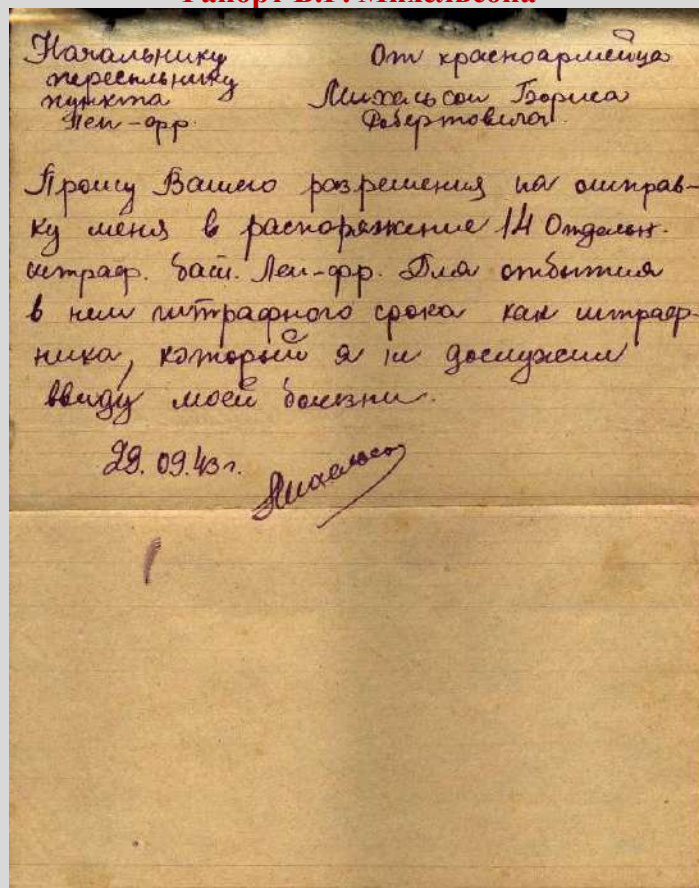 Рапорт Б.Р. Михальсона
Начальнику
пересыльнику
пункта
Лен-фр.
От красноармейца
Михельсон Бориса
Робертовича
Прошу Вашего разрешения на отправ-
ку меня в распоряжение 14 Отдельн.
штраф. бат. Лен-фр. Для отбытия
в нем штрафного срока как штраф-
ника, который я не дослужил
ввиду моей болезни.
29.09.43г.
Михельсо